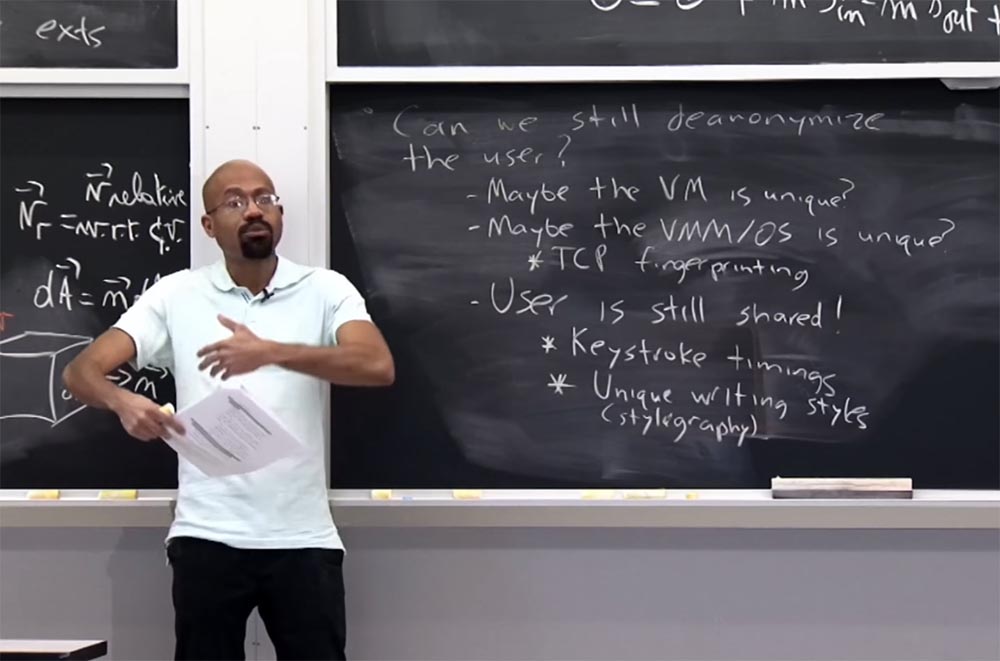 exts
in
out
N relative
Nr = w.r.t.
dA =
• Can we still deanonymize
the user?
- Maybe the VM is unique?
- Maybe the VMM/OS is unique?
* TCP fingerprinting
- User is still shared!
* Keystroke timings
* Unique writing styles
(stylography)